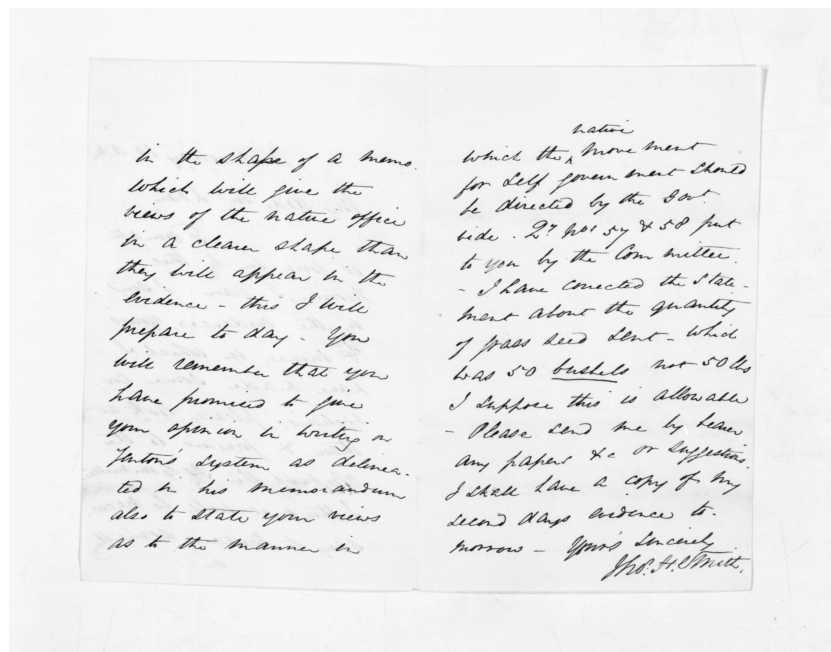 in the shape of a memo.
which will give the
views of the native office
in a clearer shape than
they will appear in the
evidence - this I will
prepare to day - You
will remember that you
have promised to give
your opinion in writing on
Fenton's system as delinea-
ted in his memorandum
also to state your views
as to the manner in
native
which the ^ movement
for self government should
be directed by the Govt.
vide. Qy Nos 57 & 58 put
to you by the Committee.
- I have corrected the state-
ment about the quantity
of grass seed sent - which
was 50 bushels not 50 lbs
I suppose this is allowable
- Please send me by bearer
any papers &c or suggestions.
I shall have a copy of my
second days evidence to-
morrow - Yours sincerely
Jno. H. C Smith.